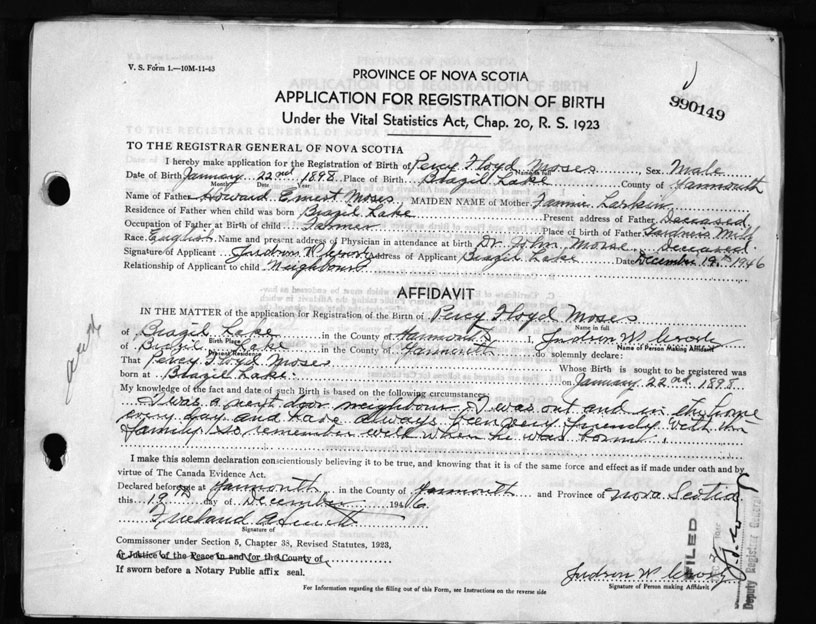 V. S. Form 1.—10M-11-43
PROVINCE OF NOVA SCOTIA
990149
APPLICATION FOR REGISTRATION OF BIRTH
Under the Vital Statistics Act, Chap. 20, R. S. 1923
TO THE REGISTRAR GENERAL OF NOVA SCOTIA
I hereby make application for the Registration of Birth of Percy Floyd Moses, Sex Male
Name in full
Date of Birth January 22nd 1898 Place of Birth Brazil Lake County of Yarmouth
Month Date Year
Name of Father Howard Ernest Moses, MAIDEN NAME of Mother Fannie Larkin
Residence of Father when child was born Brazil Lake Present address of Father Deceased
Occupation of Father at Birth of child Farmer Place of birth of Father Gardners Mills
Race English Name and present address of Physician in attendance at birth Dr. John Morse, Deceased.
Signature of Applicant Judson W Address of Applicant Brazil Lake Date December 19th 1946
Relationship of Applicant to child Neighbour
AFFIDAVIT
IN THE MATTER of the application for Registration of the Birth of Percy Floyd Moses
Name in full
of Brazil Lake in the County of Yarmouth I, Judson W
Birth Place Name of Person Making Affidavit
of Brazil Lake in the County of Yarmouth do solemnly declare:
Present Residence
That Percy Floyd Moses Whose Birth is sought to be registered was
born at Brazil Lake. on January 22nd 1898
My knowledge of the fact and date of such Birth is based on the following circumstances:
I was a next door neighbour I was out and in the home
every day and have always been very friendly with the
family so remember well when he was born.
I make this solemn declaration conscientiously believing it to be true, and knowing that it is of the same force and effect as if made under oath and by
virtue of The Canada Evidence Act.
Declared before me at Yarmouth in the County of Yarmouth and Province of Nova Scotia
this 19th day of December 1946
Signature of
Commissioner under Section 5, Chapter 38, Revised Statutes, 1923,
a Justice of the Peace in and for the County of
If sworn before a Notary Public affix seal.
Judson W
Signature of Person making Affidavit
For Information regarding the filling out of this Form, see Instructions on the reverse side
FILED
Deputy Registrar General